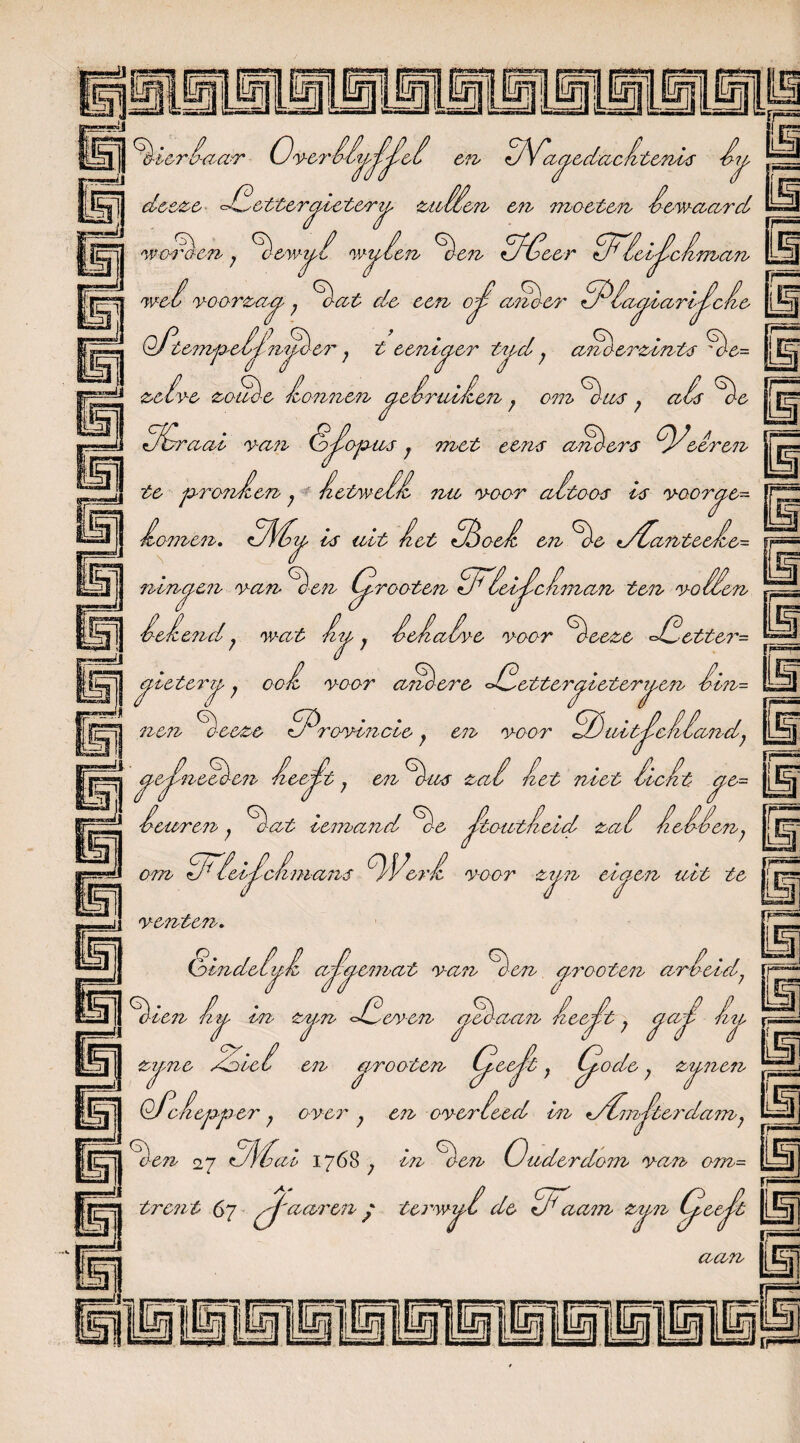 dierbaar Overblyffel en Nagedachtenis by
deeze Lettergietery zullen en moeten bewaard
worden, dewyl wylen den Heer Fleifchman
wel voorzag, dat de een of ander Plagiarifche
Stempelfnyder, t' eeniger tyd, anderzints de=
zelve zoude konnen gebruiken, om dus, als de
Kraai van Efopus, met eens anders Veêren
te pronken, hetwelk nu voor altoos is voorge=
komen. My is uit het Boek en de Aanteeke=
ningen van den Grooten Fleifchman ten vollen
bekend, wat hy, behalve voor deeze Letter=
gietery, ook voor andere Lettergieteryen bin=
nen deeze Provincie, en voor Duitfchland,
gefneeden heeft, en dus zal het niet licht ge=
beuren, dat iemand de ftoutheid zal hebben,
om Fleifchmans Werk voor zyn eigen uit te
venten.
Eindelyk afgemat van den grooten arbeid,
dien hy in zyn Leven gedaan heeft, gaf hy
zyne Ziel en grooten Geeft, Gode, zynen
Schepper, over, en overleed in Amfterdam,
den 27 Mai 1768, in den Ouderdom van om=
trent 67 Jaaren; terwyl de Faam zyn Geeft
aan